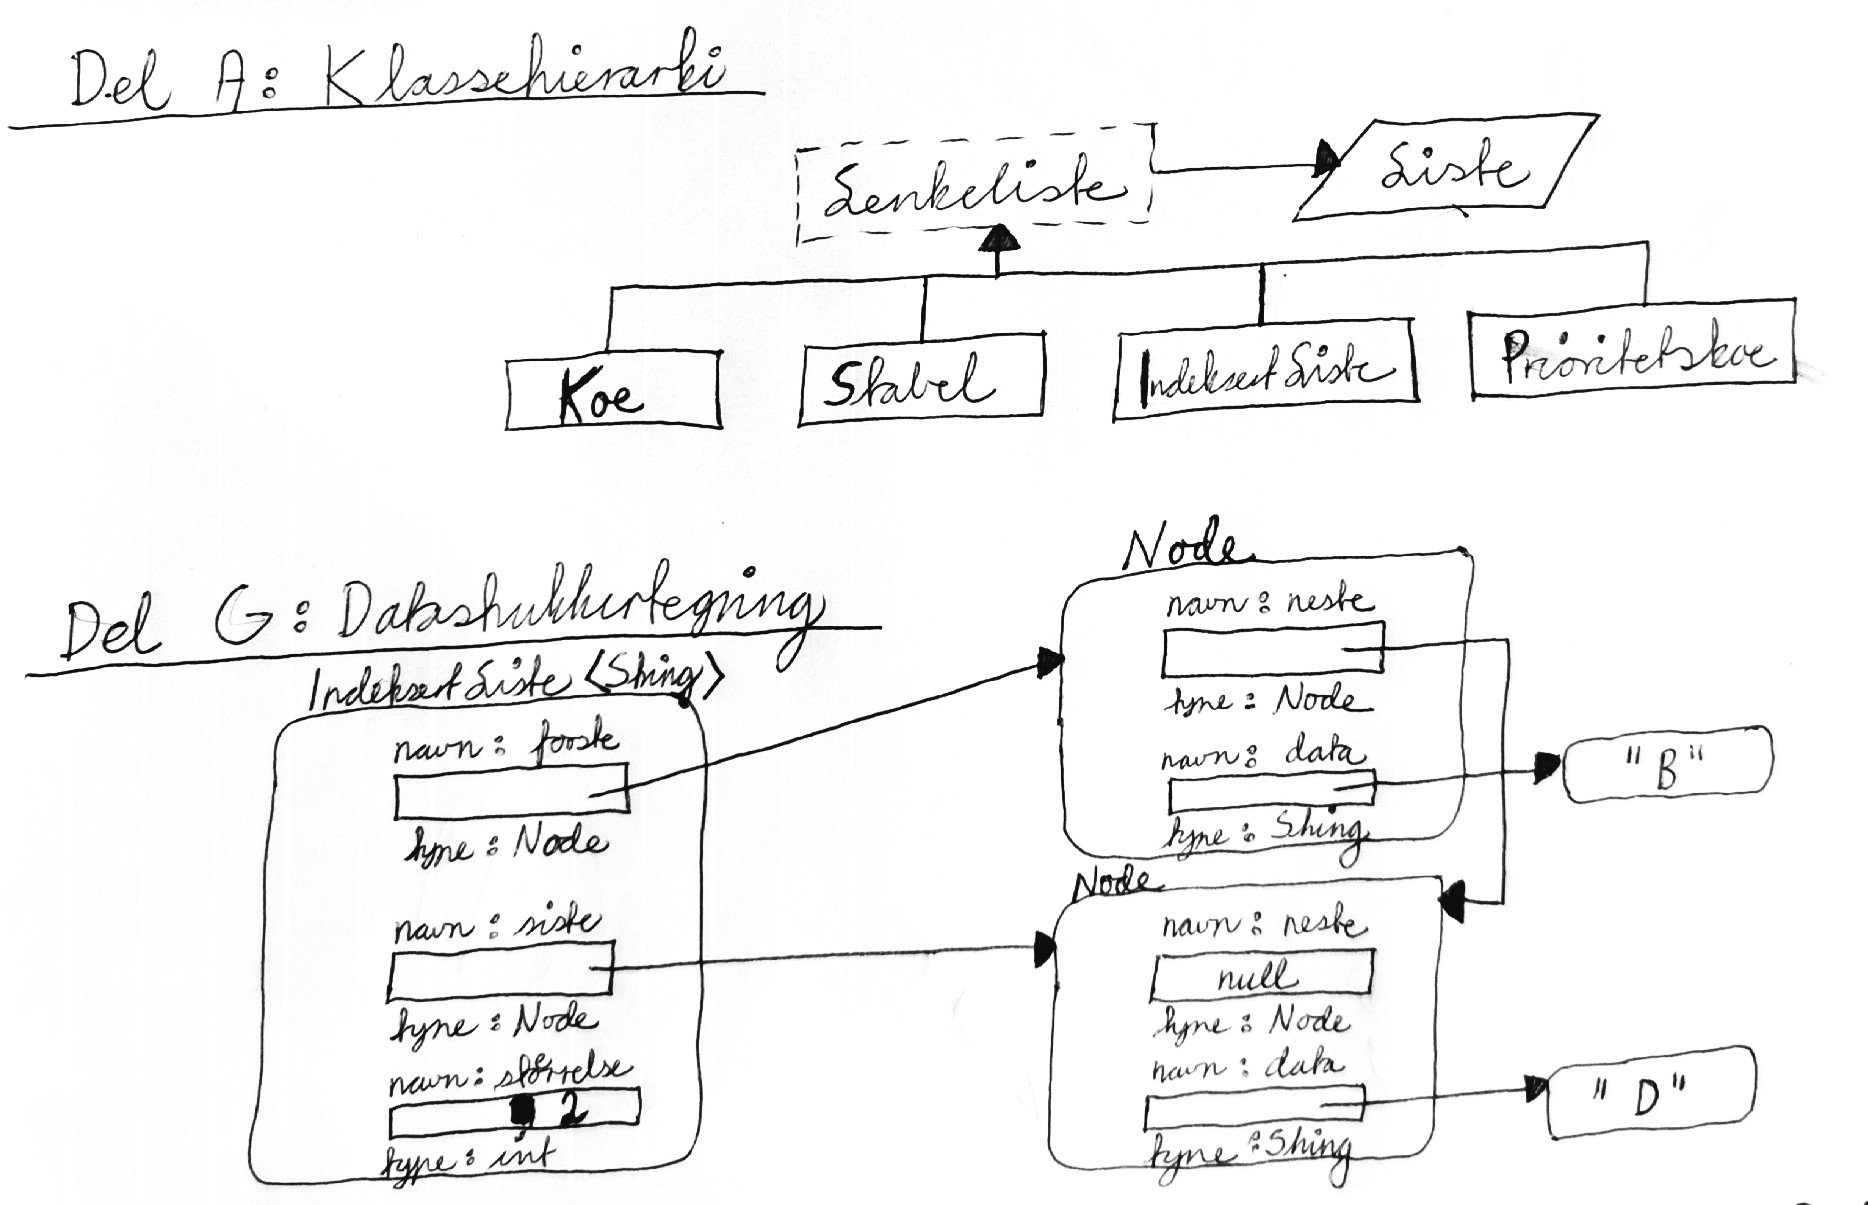 Del A: Klassehierarki
Lenkeliste
Liste
Koe
Stabel
Indeksert Liste
Prioritetskoe
Del G: Datastrukturtegning
Indeksert Liste <String>
navn: forste
type: Node
navn: siste
type: Node
navn: størrelse
2
type: int
Node
navn: neste
type: Node
navn: data
type: String
"B"
Node
navn: neste
null
type: Node
navn: data
type: String
"D"